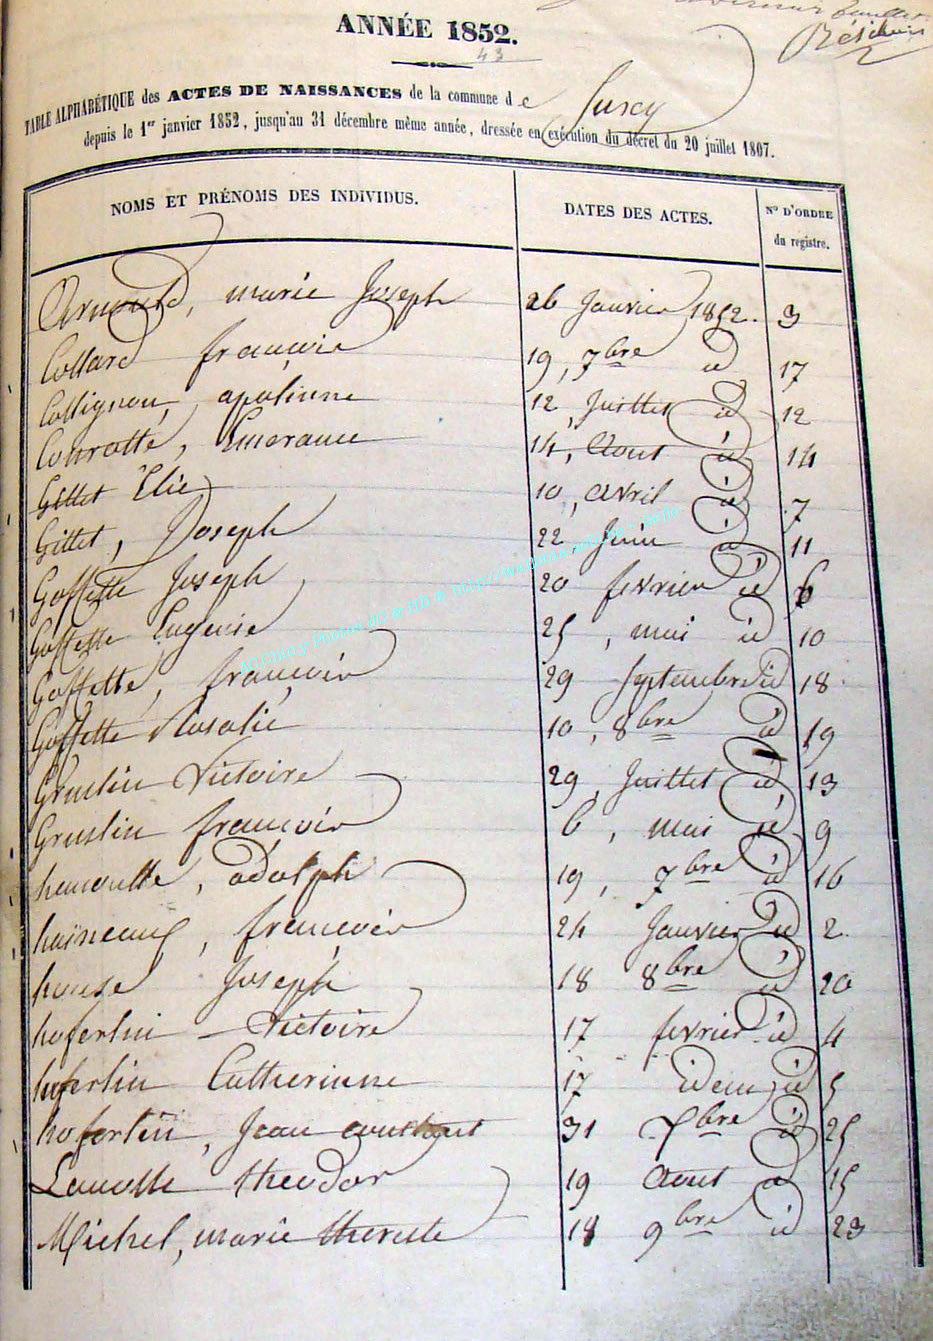 ANNÉE 1852.
43
TABLE ALPHABÉTIQUE des ACTES DE NAISSANCES de la commune de Suxy
depuis le 1er janvier 1852, jusqu'au 31 décembre même année, dressée en exécution du décret du 20 juillet 1807.
NOMS ET PRÉNOMS DES INDIVIDUS. DATES DES ACTES. N° D'ORDRE du registre.
Arnould, marie Joseph 26 Janvier 1852. 3
Collard françois 19, 7bre id 17
Collignon, apolinne 12, Juillet id 12
Conrotte, Emerance 14, Aout id 14
Gillet Élie 10, avril id 7
Gillet, Joseph 22 Juin id 11
Goffette Joseph 20 fevrier id 6
Goffette Eugenie 25, mai id 10
Goffette, françois 29 Septembre id 18
Goffette Rosalie 10, 8bre id 19
Gruslin Victoire 29, Juillet id 13
Gruslin françois 6, mai id 9
adolph 19, 7bre id 16
haineaux, françois 24 Janvier id 2
Joseph 18 8bre id 20
hoferlin Victoire 17 fevrier id 4
hoferlin Catherinne 17 idem id 5
hoferlin, Jean 31 Xbre id 25
Lamotte theodor 19 Aout id 15
Michel, marie thereste 18 9bre id 23